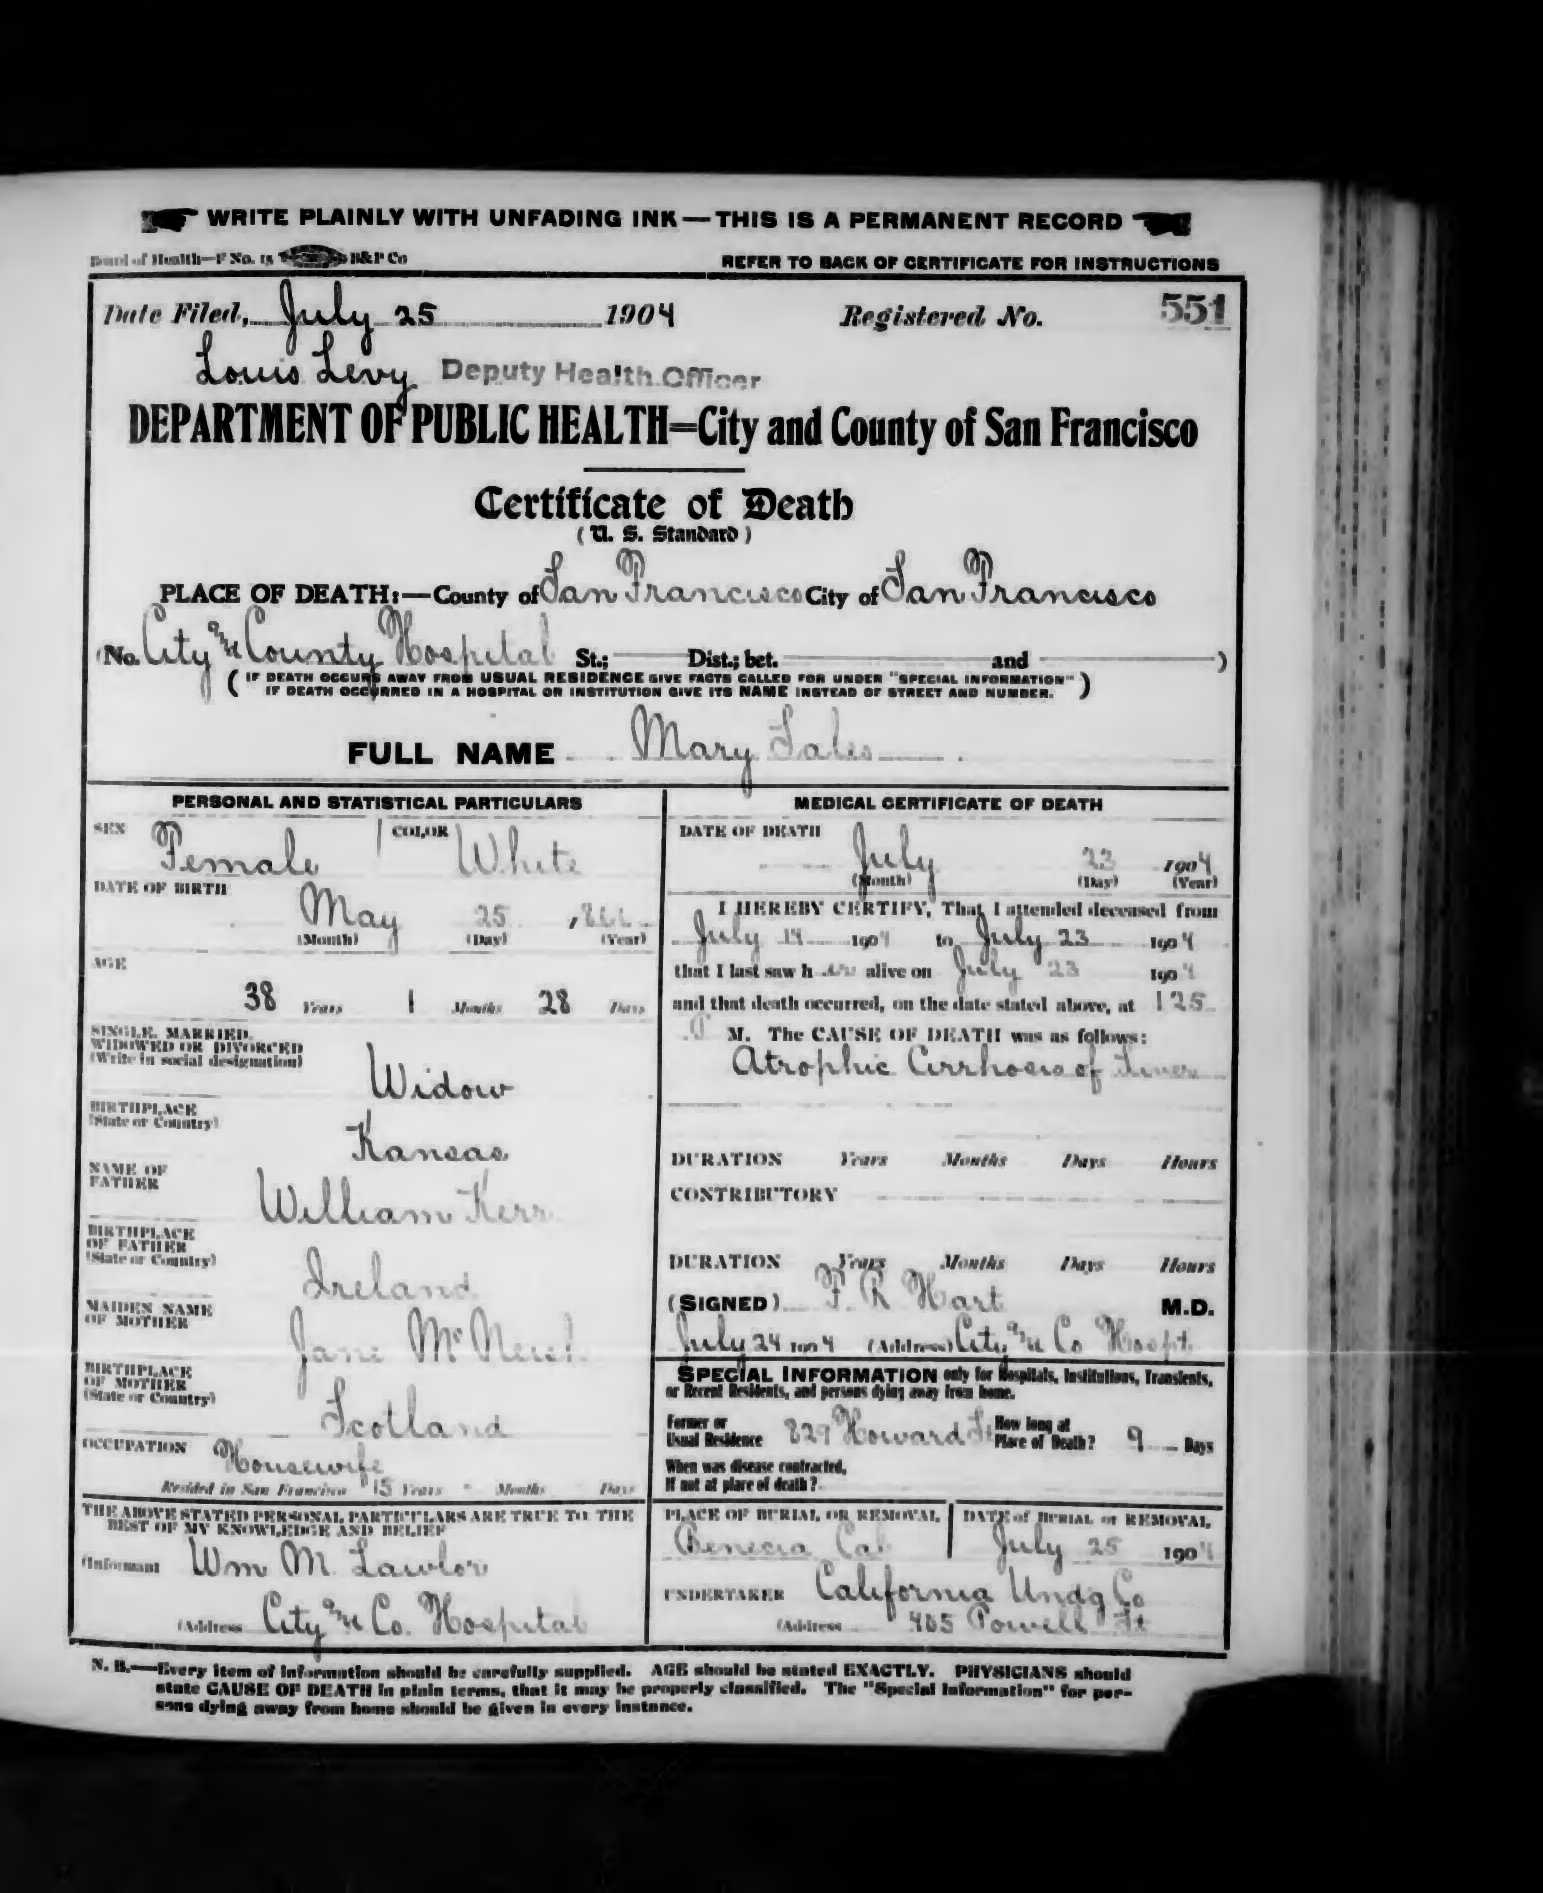 WRITE PLAINLY WITH UNFADING INK—THIS IS A PERMANENT RECORD
Board of Health—F No. 15 B&P Co
REFER TO BACK OF CERTIFICATE FOR INSTRUCTIONS
Date Filed, July 25 1904 Registered No. 551
Louis Levy Deputy Health Officer
DEPARTMENT OF PUBLIC HEALTH=City and County of San Francisco
Certificate of Death
(U. S. Standard)
PLACE OF DEATH:—County of San Francisco City of San Francisco
(No. City and County Hospital St.; Dist.; bet. and )
(IF DEATH OCCURS AWAY FROM USUAL RESIDENCE GIVE FACTS CALLED FOR UNDER "SPECIAL INFORMATION"
IF DEATH OCCURRED IN A HOSPITAL OR INSTITUTION GIVE ITS NAME INSTEAD OF STREET AND NUMBER.)
FULL NAME Mary Sales
PERSONAL AND STATISTICAL PARTICULARS
SEX Female COLOR White
DATE OF BIRTH
May 25
(Month) (Day) (Year)
AGE
38 Years 1 Months 28 Days
SINGLE, MARRIED,
WIDOWED OR DIVORCED
(Write in social designation)
Widow
BIRTHPLACE
(State or Country)
Kansas
NAME OF
FATHER
William Kerr
BIRTHPLACE
OF FATHER
(State or Country)
Ireland
MAIDEN NAME
OF MOTHER
Jane
BIRTHPLACE
OF MOTHER
(State or Country)
Scotland
OCCUPATION Housewife
Resided in San Francisco 15 Years - Months Days
THE ABOVE STATED PERSONAL PARTICULARS ARE TRUE TO THE
BEST OF MY KNOWLEDGE AND BELIEF
(Informant Wm M. Lawlor
(Address City and Co. Hospital
MEDICAL CERTIFICATE OF DEATH
DATE OF DEATH
July 23 1904
(Month) (Day) (Year)
I HEREBY CERTIFY, That I attended deceased from
July 14 1904 to July 23 1904
that I last saw h er alive on July 23 1904
and that death occurred, on the date stated above, at 1 25
P M. The CAUSE OF DEATH was as follows:
Atrophic Cirrhosis of Liver
DURATION Years Months Days Hours
CONTRIBUTORY
DURATION Years Months Days Hours
(SIGNED) F. R Hart M.D.
July 24 1904 (Address) City and Co Hospt.
SPECIAL INFORMATION only for Hospitals, Institutions, Transients,
or Recent Residents, and persons dying away from home.
Former or
Usual Residence 829 Howard St
How long at
Place of Death? 9 Days
When was disease contracted,
If not at place of death?
PLACE OF BURIAL OR REMOVAL
Benecia Cal
DATE of BURIAL or REMOVAL
July 25 1904
UNDERTAKER California Undg Co
(Address 405 Powell St
N. B.—Every item of information should be carefully supplied. AGE should be stated EXACTLY. PHYSICIANS should
state CAUSE OF DEATH in plain terms, that it may be properly classified. The "Special Information" for per-
sons dying away from home should be given in every instance.